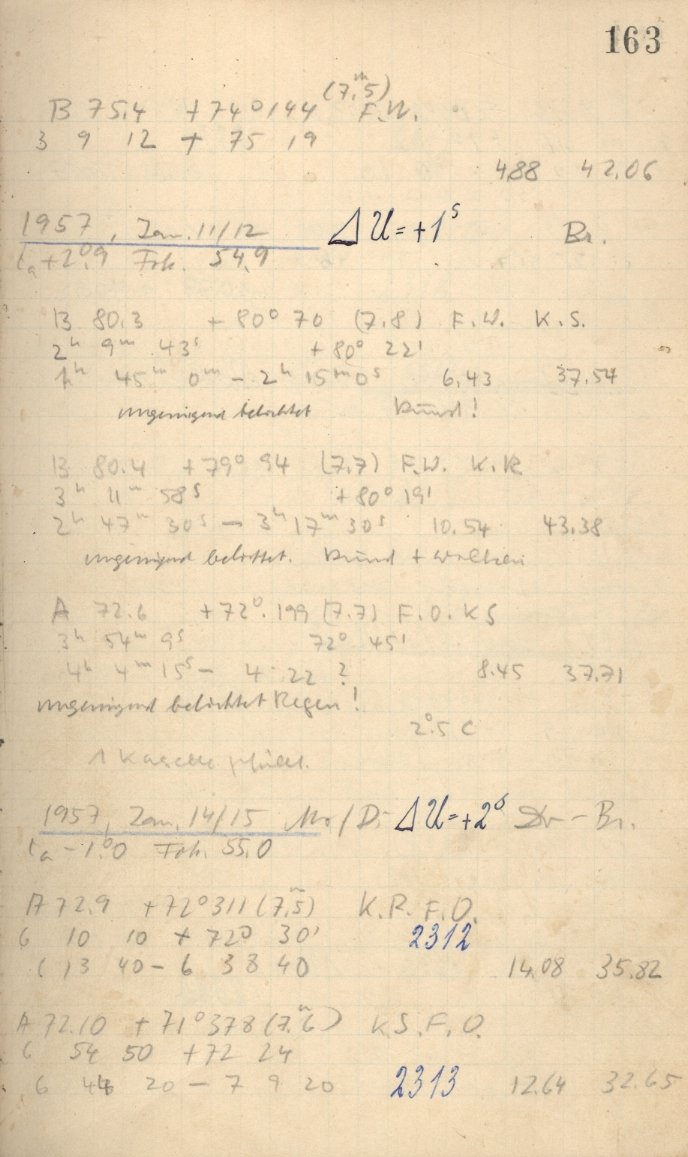 163
(7,5ᵐ)
B 75.4 +74°144 F.W.
3 9 12 + 75 19
4.88 42.06
1957, Jan. 11/12 ΔU=+1ˢ Br.
tₐ+2°.9 Fok. 54.9
B 80.3 +80° 70 (7.8) F.W. K.S.
2ʰ 9ᵐ 43ˢ +80° 22'
1ʰ 45ᵐ 0ᵐ – 2ʰ 15ᵐ 0ˢ 6.43 37.54
ungenügend belichtet Dunst!
B 80.4 +79° 94 (7.7) F.W. K.R
3ʰ 11ᵐ 58ˢ +80° 19'
2ʰ 47ᵐ 30ˢ – 3ʰ 17ᵐ 30ˢ 10.54 43.38
ungenügend belichtet. Dunst + Wolken
A 72.6 +72°.199 (7.7) F.O. KS
3ʰ 54ᵐ 9ˢ 72° 45'
4ʰ 4ᵐ 15ˢ – 4 22 ? 8.45 37.71
ungenügend belichtet Regen!
2°.5 C
1 Kassette gefüllt.
1957, Jan. 14/15 Mo/Di ΔU=+2ˢ – Br.
tₐ –1.°0 Fok. 55.0
A 72.9 +72°311 (7,5ᵐ) K.R. F.O.
6 10 10 + 72° 30' 2312
13 40 – 6 38 40 14.08 35.82
A 72.10 +71°378 (7.6ᵐ) K.S. F.O.
6 54 50 +72 24
6 44 20 – 7 9 20 2313 12.64 32.65